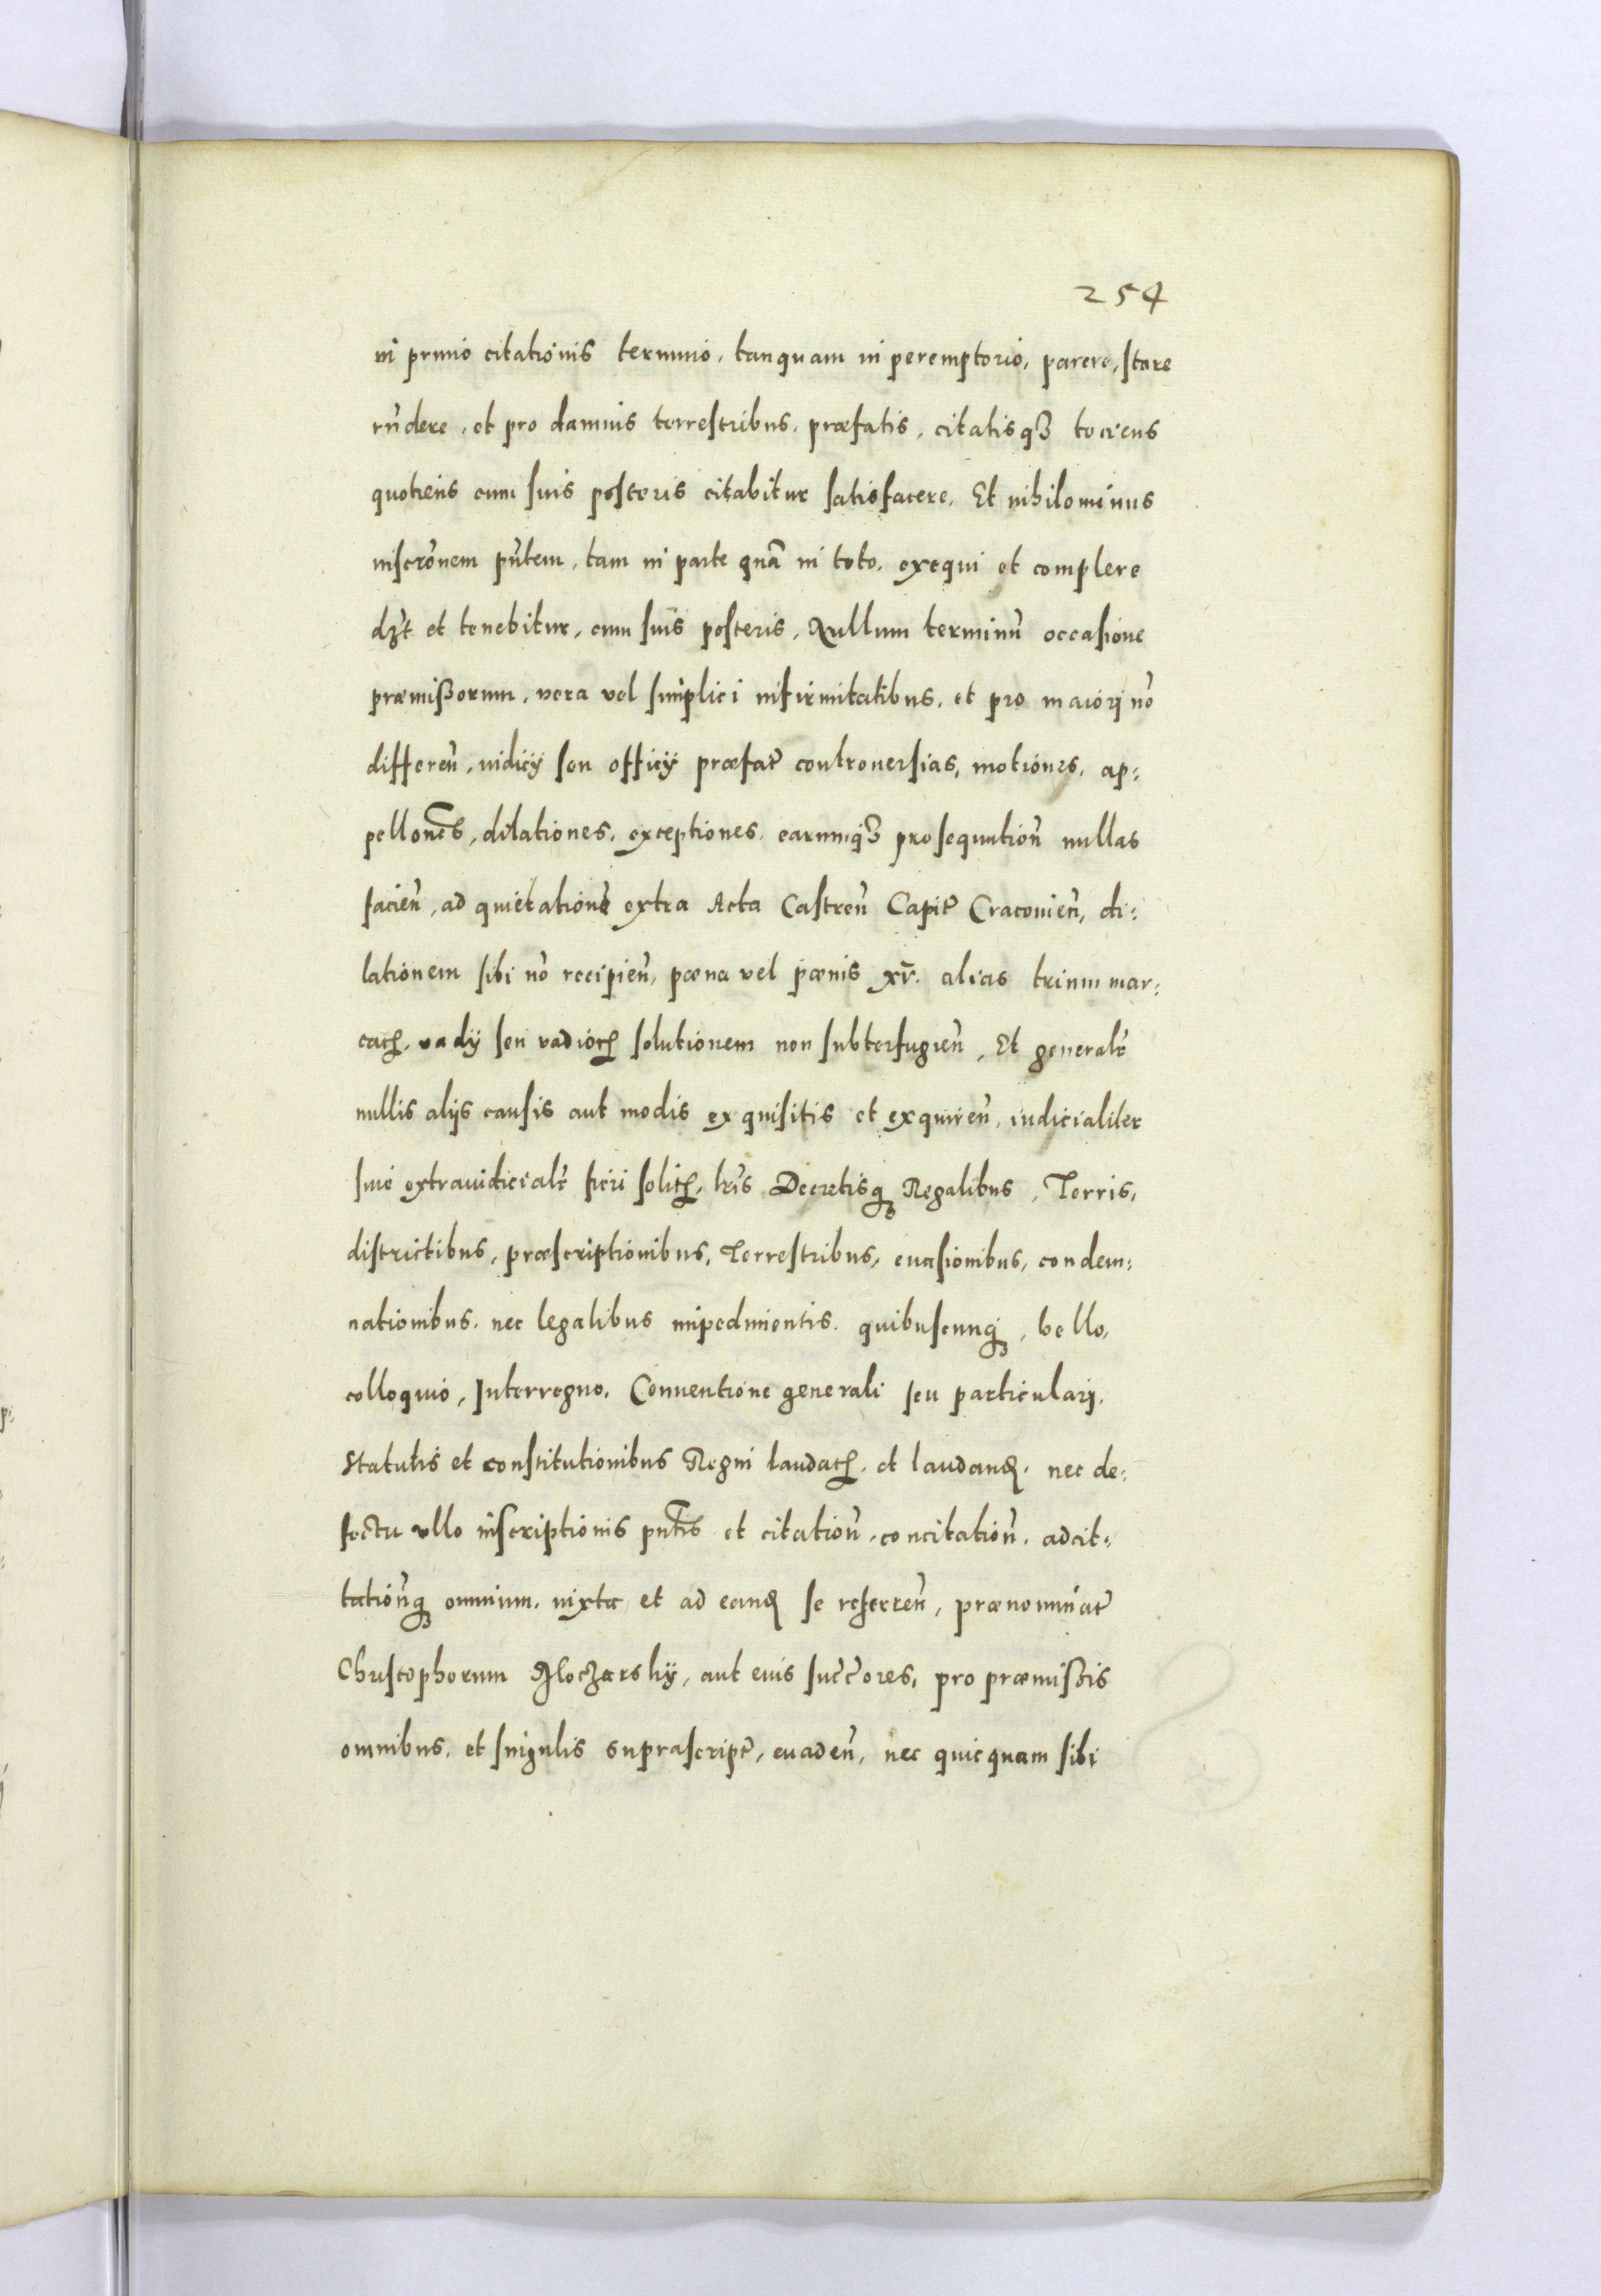 254
in primo citationis termino, tanquam in peremptorio, parere, stare
rñdere, et pro damnis terrestribus, præfatis, citatisqз tociens
quotiens cum suis posteris citabitur satisfacere. Et nihilominus
inscrõnem pñtem, tam in parte quã in toto, exequi et complere
dz̃t et tenebitur, cum suis posteris, Nullum terminũ occasione
præmissorum, vera vel simplici infirmitatibus, et pro maiori nõ
differeñ, iudicÿ seu officÿ præfat̃ controuersias, motiones, ap:
pellonẽs, dilationes, exceptiones, earumqз prosequutioñ nullas
facieñ, ad quietationẽ extra Acta Castreñ Capit̃ Cracouieñ, di:
lationem sibi nõ recipieñ, pæna vel pænis xv. alias trium mar:
caꝝ, vadÿ seu vadioꝝ solutionem non subterfugieñ, Et generalr̃
nullis alÿs causis aut modis exquisitis et exquireñ, iudicialiter
siue extraiudicialr̃ fieri solitꝝ, lr̃is Decretisqз Regalibus, Terris,
districtibus, præscriptionibus, Terrestribus, euasionibus, condem:
nationibus, nec legalibus impedimentis quibuscunqз, bello,
colloquio, Interregno, Conuentione generali seu particulari,
Statutis et constitutionibus Regni laudatꝝ, et laudanꝶ, nec de:
fectu vllo inscriptionis pñtis et citatioñ, concitatioñ, adcit:
tatioñqз omnium, iuxta et ad eanꝶ se refereñ, prænominat̃
Christophorum Kloczarskÿ, aut eius succ̃ores, pro præmissis
omnibus, et singulis suprascript̃, euadeñ, nec quicquam sibi